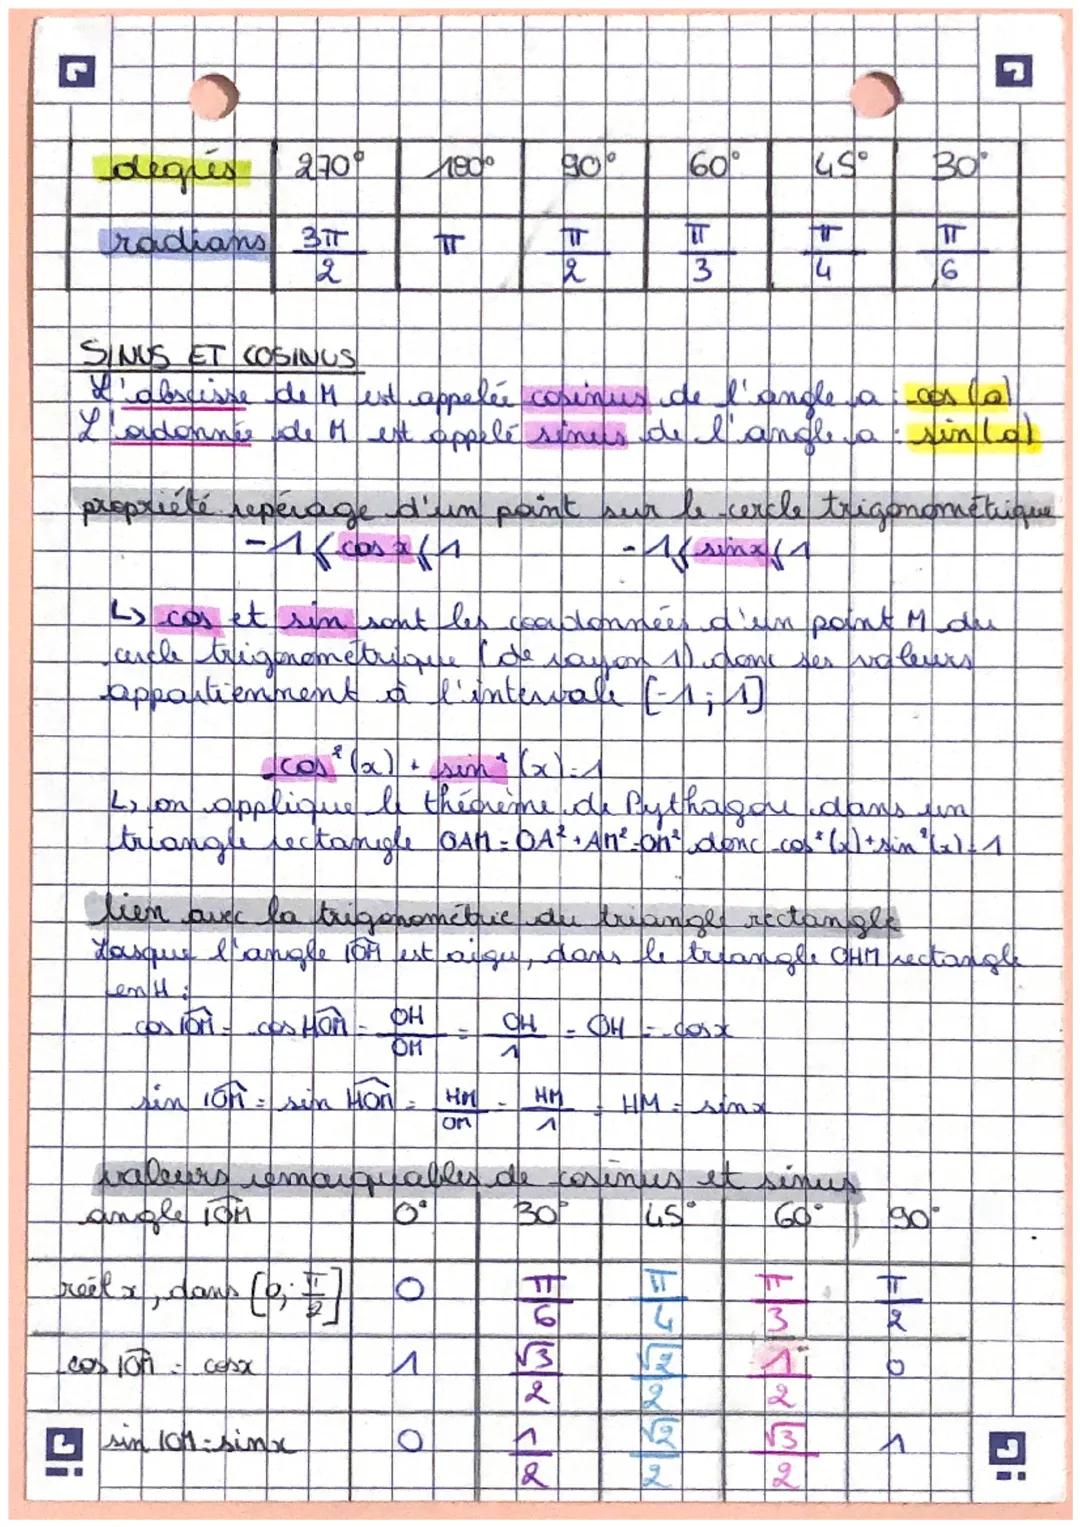 degrés 270° 180° 90° 60° 45° 30°
radians 3π/2 π π/2 π/3 π/4 π/6
SINUS ET COSINUS
L'abscisse de M est appelée cosinus de l'angle a : cos(a)
L'ordonnée de M est appelé sinus de l'angle a : sin(a)
propriété repérage d'un point sur le cercle trigonométrique
-1 ≤ cos x ≤ 1 -1 ≤ sin x ≤ 1
↳ cos et sin sont les coordonnées d'un point M du
cercle trigonométrique (de rayon 1) donc ses valeurs
appartiennent à l'intervale [-1 ; 1]
cos²(x) + sin²(x) = 1
↳ on applique le théorème de Pythagore dans un
triangle rectangle OAM = OA² + AM² = OM² donc cos²(x) + sin²(x) = 1
lien avec la trigonométrie du triangle rectangle
Lorsque l'angle IOM est aigu, dans le triangle OHM rectangle
en H :
cos IOM = cos HOM = OH/OM = OH/1 = OH = cos x
sin IOM = sin HOM = HM/OM = HM/1 = HM = sin x
valeurs remarquables de cosinus et sinus
angle IOM 0° 30° 45° 60° 90°
réel x, dans [0; π/2] 0 π/6 π/4 π/3 π/2
cos IOM = cos x 1 √3/2 √2/2 1/2 0
sin IOM = sin x 0 1/2 √2/2 √3/2 1